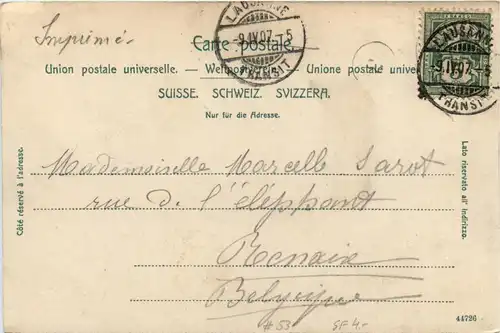 LAUSANNE
-9.IV.07.-5
TRANSIT
LAUSANNE
-9.IV.07.-5
TRANSIT
Imprimé.
Carte postale.
Union postale universelle. — Weltpostverein. — Unione postale univer
SUISSE. SCHWEIZ. SVIZZERA.
Nur für die Adresse.
Côté réservé à l'adresse.
Lato riservato all' indirizzo.
Mademoiselle Marcelle Sarot
rue de l'éléphant
Renaix
Belgique
#53 SF 4.-
44726